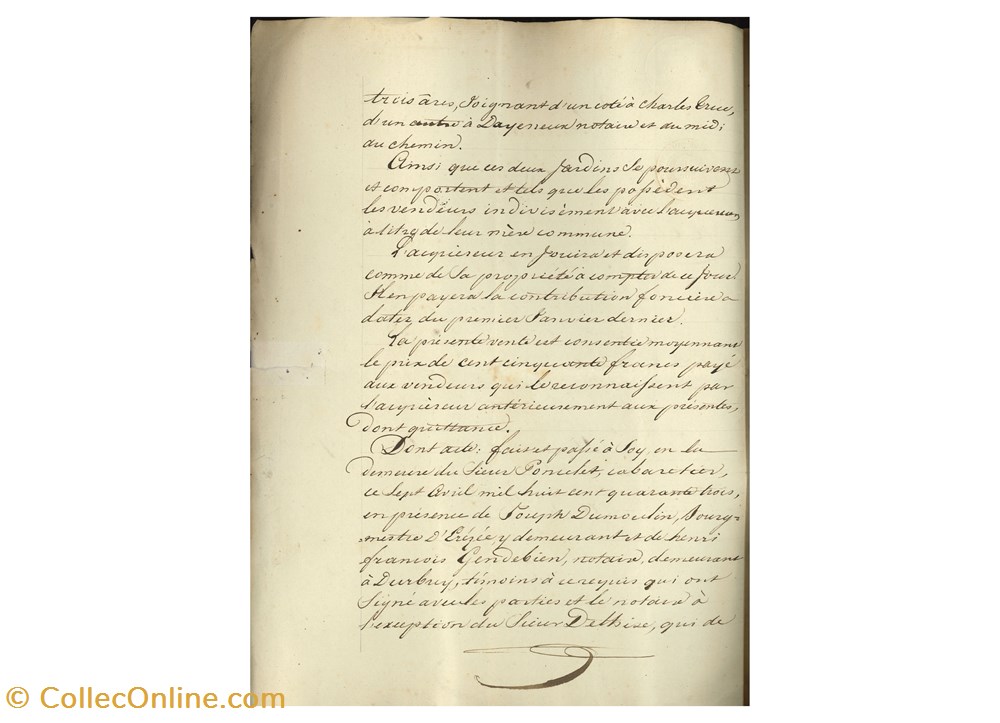 trois ares, Joignant d'un coté à Charles Crue,
d'un autre à Dayeneux notaire et du midi
au chemin.
Ainsi que ces deux Jardins se poursuivent
et comportent et tels que les possèdent
les vendeurs indivisément avec l'acquereur
à titre de leur mère commune.
L'acquéreur en Jouira et disposera
comme de sa propriété à compter de ce Jour
Il en payera la contribution foncière à
dater du premier Janvier dernier.
La présente vente est consentie moyennant
le prix de cent cinquante francs payé
aux vendeurs qui le reconnaissent par
l'acquèreur antérieurement aux présentes,
dont quittance.
Dont acte: fait et passé à Soy, en la
demeure du Sieur Poncelet, cabaretier,
ce sept Avril mil huit cent quarante trois,
en présence de Joseph Dumoulin, Bourg-
mestre D'Erézée, y demeurant et de henri
françois Gendebien, notaire, demeurant
à Durbuy, témoins à ce requis qui ont
Signé avec les parties et le notaire à
l'exception du Sieur Dethise, qui de
© CollecOnline.com